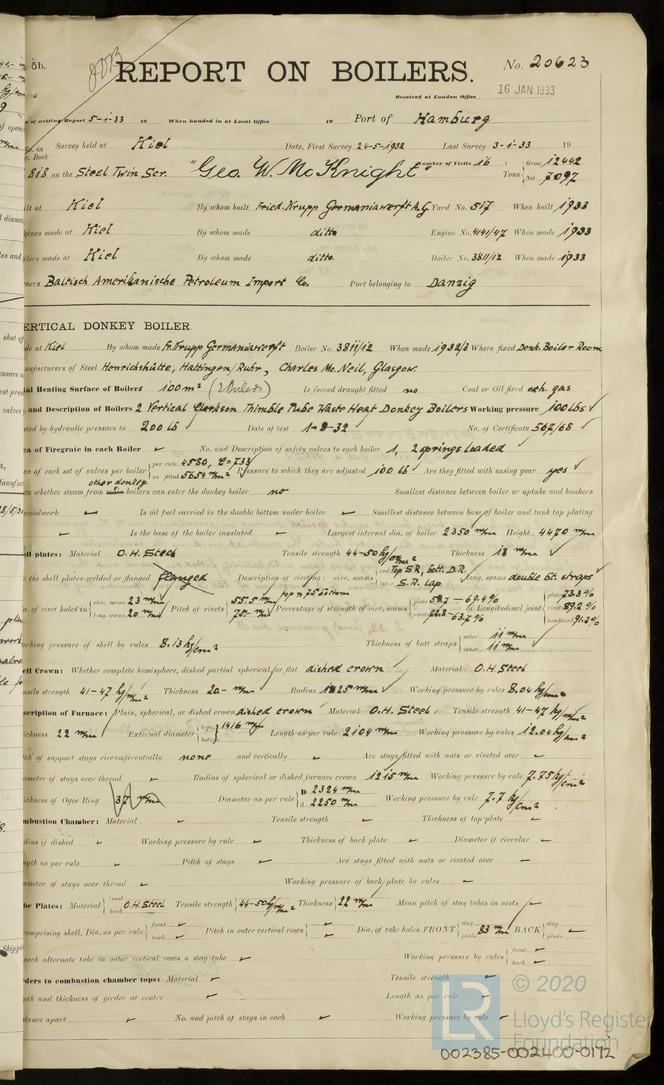 5b.
REPORT ON BOILERS.
No. 20623
16 JAN 1933
Received at London Office
of writing Report 5-1-33 19 When handed in at Local Office 19 Port of Hamburg
No. in Survey held at Kiel Date, First Survey 24-5-1932 Last Survey 3-1-33 19
Book
818 on the Steel Twin Scr. "Geo. W. McKnight" Number of Visits 16 Tons Gross 12442 Net 7097
ilt at Kiel By whom built Fried. Krupp Germaniawerft A.G Yard No. 517 When built 1933
gines made at Kiel By whom made ditto Engine No. 4141/47 When made 1933
ilers made at Kiel By whom made ditto. Boiler No. 3811/12 When made 1933
ners Baltisch Amerikanische Petroleum Import Co. Port belonging to Danzig
ERTICAL DONKEY BOILER.
de at Kiel By whom made Fr. Krupp Germaniawerft Boiler No. 3811/12 When made 1932/3 Where fixed Donk. Boiler Room
nufacturers of Steel Henrichshütte, Hattingen/Ruhr, Charles Mc. Neil, Glasgow.
al Heating Surface of Boilers 100 m² (2 Boilers) Is forced draught fitted no Coal or Oil fired exh. gas
and Description of Boilers 2 Vertical Clarkson Thimble Tube Waste Heat Donkey Boilers Working pressure 100 lbs
ted by hydraulic pressure to 200 lb Date of test 1-9-32 No. of Certificate 567/68
ea of Firegrate in each Boiler No. and Description of safety valves to each boiler 1, 2 springs loaded
ea of each set of valves per boiler per rule 4580, C=733 as fitted 5654 m/m² Pressure to which they are adjusted 100 lb Are they fitted with easing gear yes
te whether steam from other donkey boilers can enter the donkey boiler no Smallest distance between boiler or uptake and bunkers
woodwork Is oil fuel carried in the double bottom under boiler Smallest distance between base of boiler and tank top plating
Is the base of the boiler insulated Largest internal dia. of boiler 2350 m/m Height 4470 m/m
ell plates: Material O.H. Steel Tensile strength 44-50 kg/m/m² Thickness 13 m/m
e the shell plates welded or flanged flanged Description of riveting: circ. seams Top S.R., bott. D.R. S.R. lap long. seams double bt. straps
a. of rivet holes in circ. seams 23 m/m long. seams 20 m/m Pitch of rivets 55.5 m/m top n. 75 bottom 75.- m/m Percentage of strength of circ. seams plate of Longitudinal joint plate 73.3 % rivets 89.2 % combined
rking pressure of shell by rules 8.13 kg/cm² Thickness of butt straps outer 11 m/m inner 11 m/m
ell Crown: Whether complete hemisphere, dished partial spherical, or flat dished crown Material O.H. Steel
nsile strength 41-47 kg/m/m² Thickness 20 - m/m Radius 1825 m/m Working pressure by rules 8.04 kg/cm²
scription of Furnace: Plain, spherical, or dished crown dished crown Material O.H. Steel Tensile strength 41-47 kg/m/m²
ickness 22 m/m External diameter top 1416 m/m bottom Length as per rule 2104 m/m Working pressure by rules 12.04 kg/cm²
ch of support stays circumferentially none and vertically Are stays fitted with nuts or riveted over
ameter of stays over thread Radius of spherical or dished furnace crown 1215 m/m Working pressure by rule 7.75 kg/cm²
ickness of Ogee Ring 37 m/m Diameter as per rule D 2324 m/m d 2250 m/m Working pressure by rule 7.7 kg/cm²
mbustion Chamber: Material Tensile strength Thickness of top plate
dius if dished Working pressure by rule Thickness of back plate Diameter if circular
ngth as per rule Pitch of stays Are stays fitted with nuts or riveted over
ameter of stays over thread Working pressure of back plate by rules
be Plates: Material front back O.H. Steel Tensile strength 44-50 kg/m/m² Thickness 22 m/m Mean pitch of stay tubes in nests
omprising shell, Dia. as per rule front back Pitch in outer vertical rows Dia. of tube holes FRONT stay plain 83 m/m BACK stay plain
each alternate tube in outer vertical rows a stay tube Working pressure by rules front back
rders to combustion chamber tops: Material Tensile strength
pth and thickness of girder at centre Length as per rule
stance apart No. and pitch of stays in each Working pressure by rule
© 2020
LR
Lloyd's Register
Foundation
002385-002400-0172